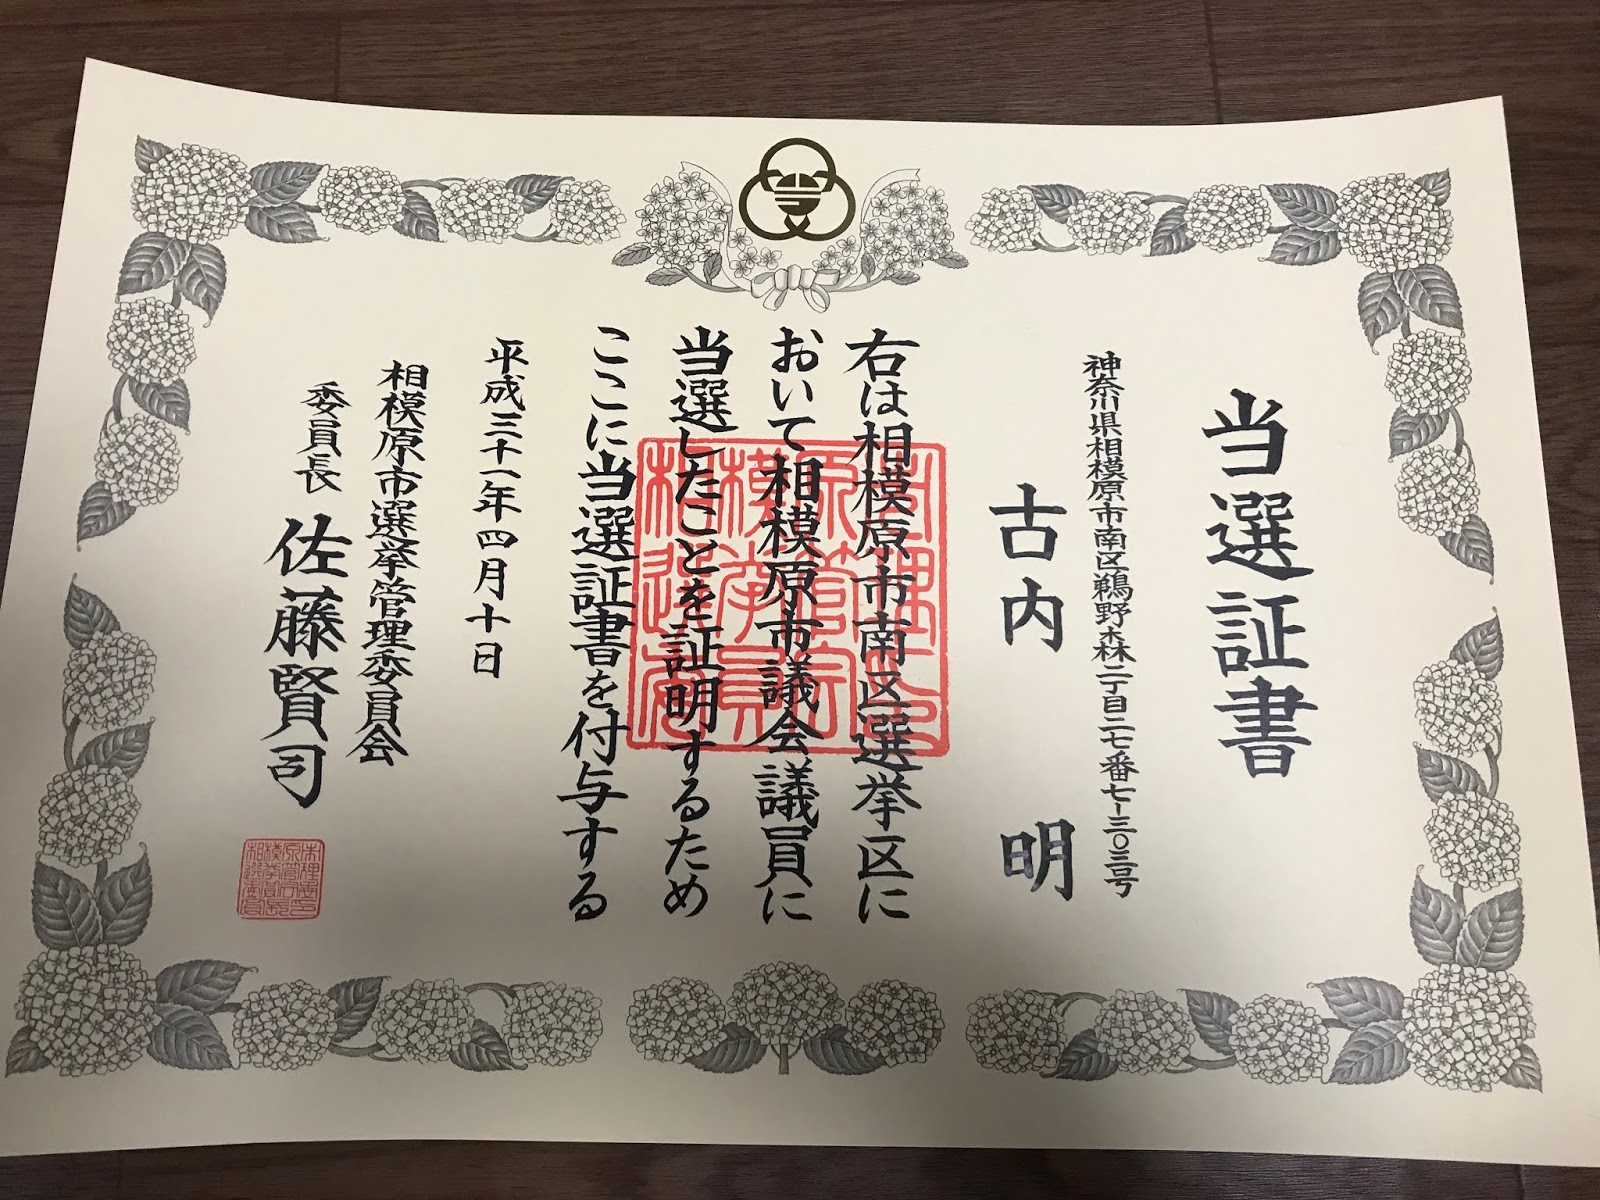 当選証書
神奈川県相模原市南区鵜野森二丁目二七番七-三〇三号
古内 明
右は相模原市南区選挙区に
おいて相模原市議会議員に
当選したことを証明するため
ここに当選証書を付与する
平成三十一年四月十日
相模原市選挙管理委員会
委員長 佐藤賢司